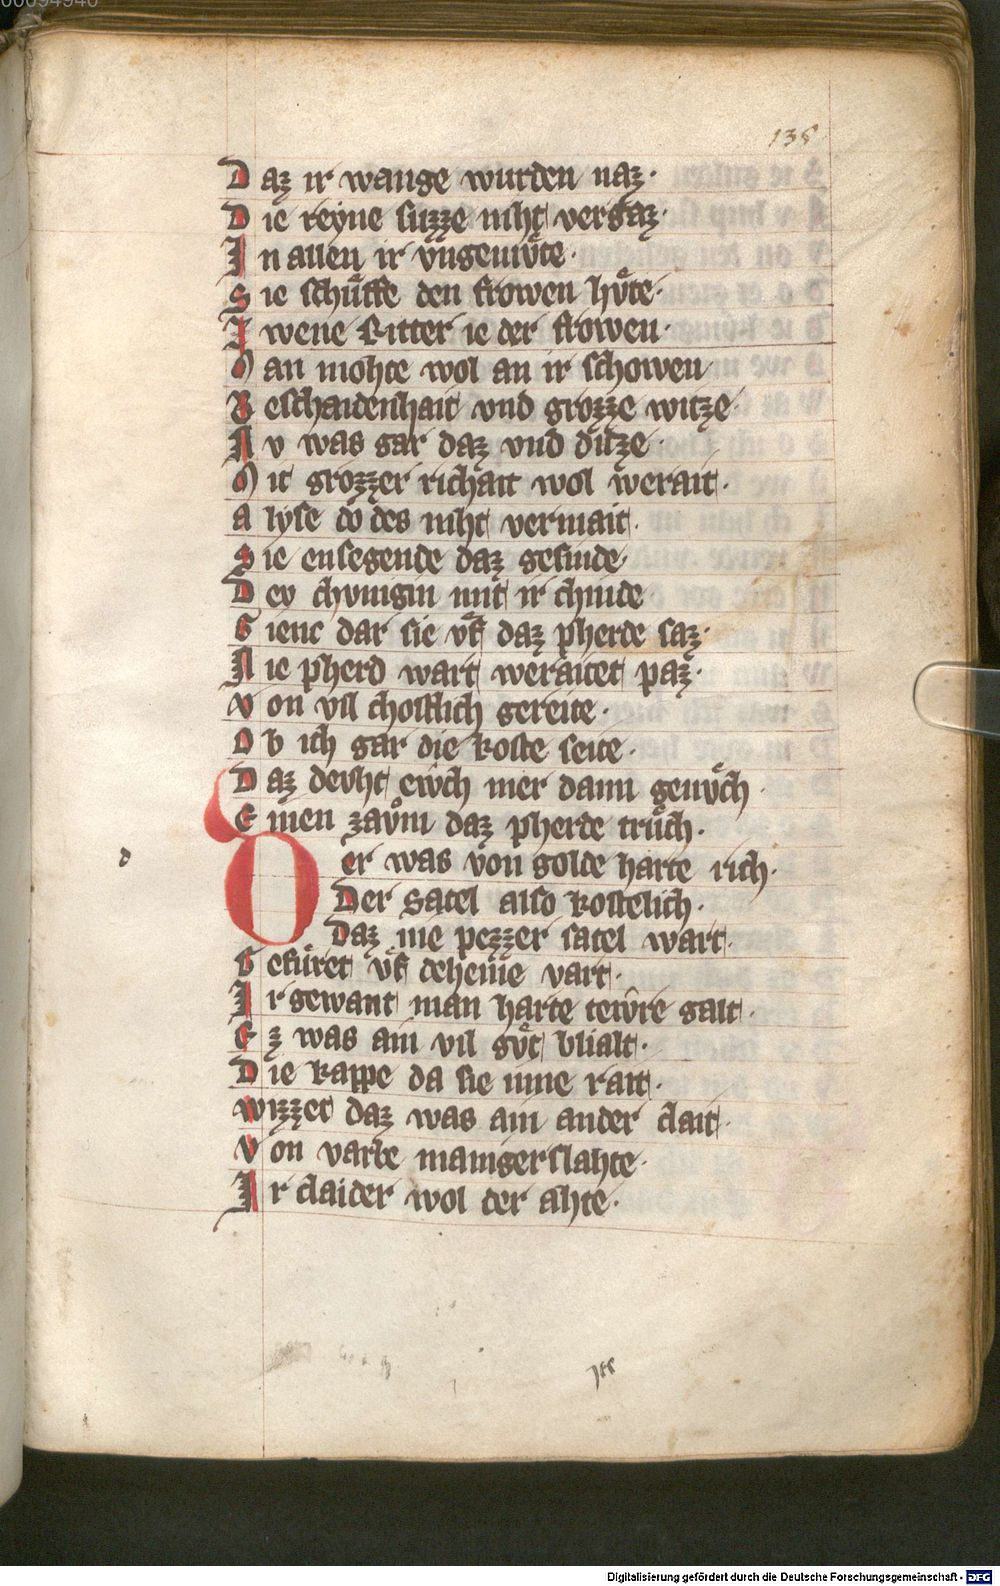 00094946
135
Daz ir wange wurden naz·
Die reyne suzze niht vergaz·
In allen ir vngemvͤte·
Sie schuͤffe den frowen hvͤte·
Iwene Ritter ie der frowen·
Man mohte wol an ir schowen
Beschaidenhait vnd grozze witze·
Nv was gar daz vnd ditze·
Mit grozzer richait wol werait·
Alyse do des niht vermait·
Sie ensegende daz gesinde·
Dev chvnigin mit ir chinde
Gienc dar sie vf daz pherde saz·
Nie pherd wart weraitet paz·
Von vil chostlich gereite·
Ob ich gar die koste seite·
Daz devht ewch mer dann genvͤch·
Einen zavͦm daz pherde truͤch·
d
Der was von golde harte rich·
Der satel also kostelich·
Daz nie pezzer satel wart·
Gefuͤret vf deheine vart·
Ir gewant man harte tewre galt·
Ez was ain vil gvͤt blialt·
Die kappe da sie inne rait·
Wizzet daz was ain ander clait·
Von varbe manigerslahte·
Ir claider wol der ahte·
Digitalisierung gefördert durch die Deutsche Forschungsgemeinschaft - DFG